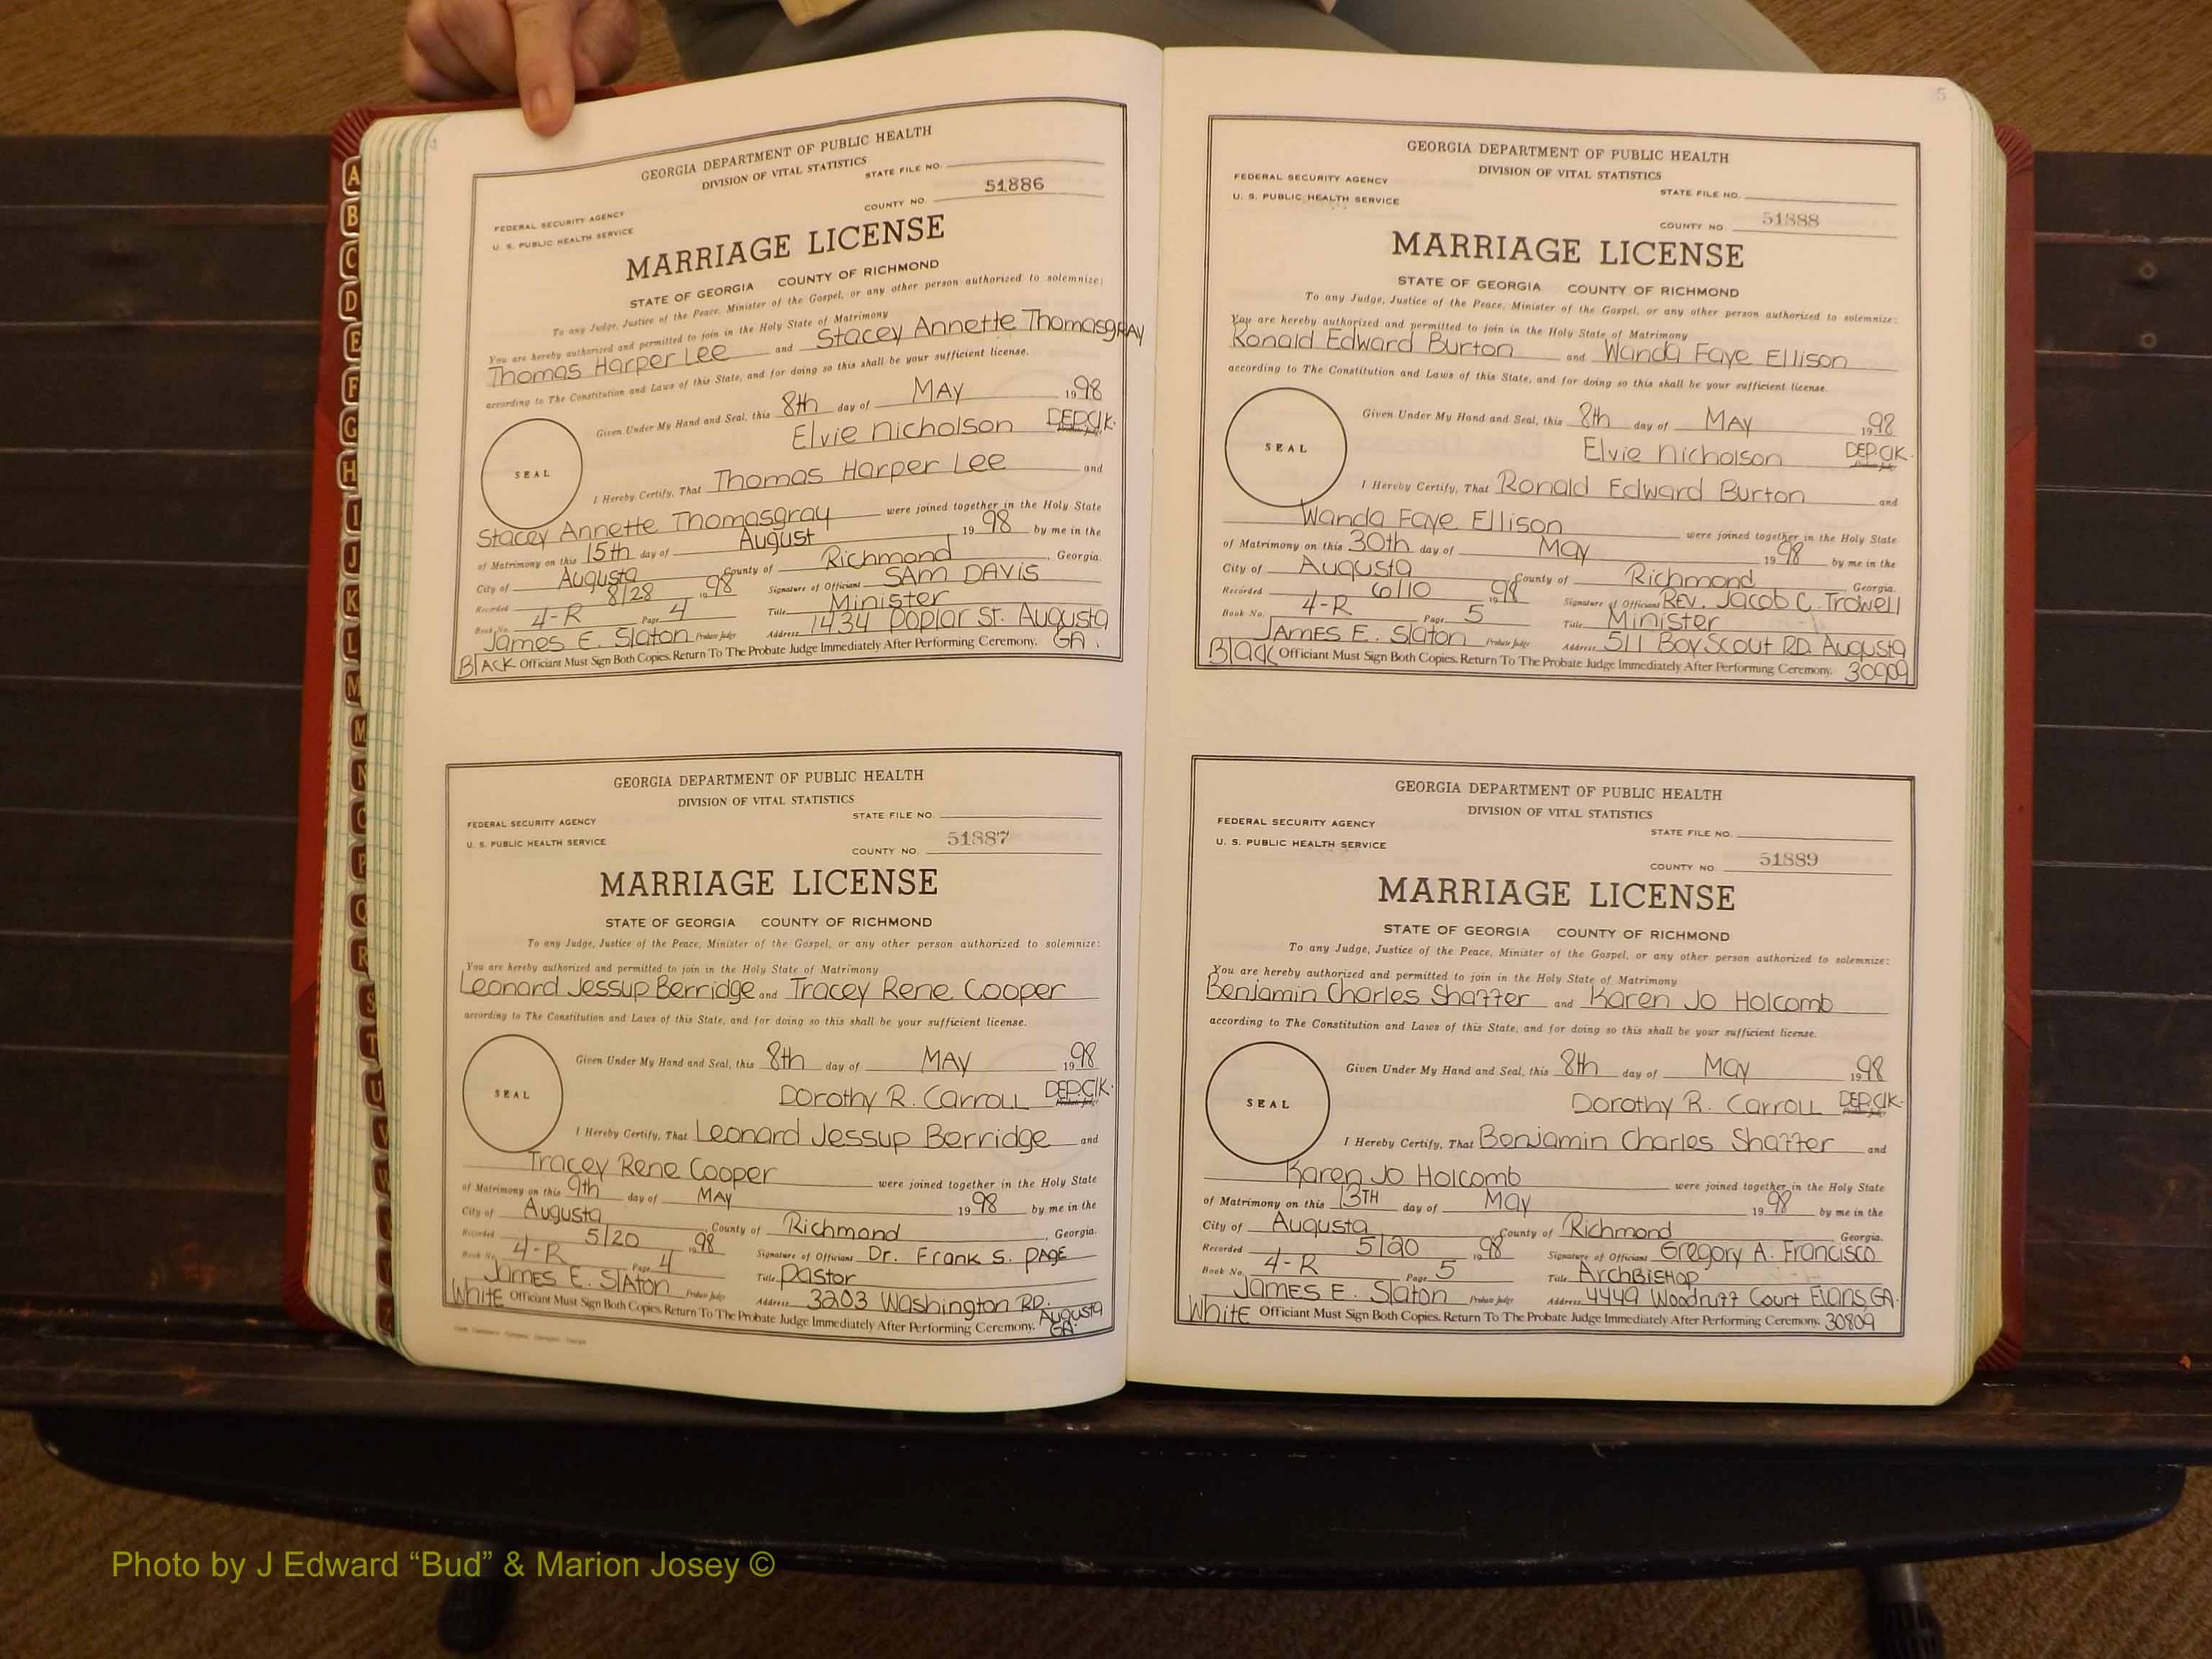 A
B
C
D
E
F
G
H
I
J
K
L
M
M
N
O
P
Q
R
S
T
U
V
W
GEORGIA DEPARTMENT OF PUBLIC HEALTH
DIVISION OF VITAL STATISTICS
STATE FILE NO.
51886
COUNTY NO.
FEDERAL SECURITY AGENCY
U. S. PUBLIC HEALTH SERVICE
MARRIAGE LICENSE
STATE OF GEORGIA COUNTY OF RICHMOND
To any Judge, Justice of the Peace, Minister of the Gospel, or any other person authorized to solemnize:
You are hereby authorized and permitted to join in the Holy State of Matrimony
Thomas Harper Lee and Stacey Annette Thomasgray
according to The Constitution and Laws of this State, and for doing so this shall be your sufficient license.
Given Under My Hand and Seal, this 8th day of MAY 1998
Elvie Nicholson DEP.Clk.
Probate Judge
SEAL
I Hereby Certify, That Thomas Harper Lee and
Stacey Annette Thomasgray were joined together in the Holy State
of Matrimony on this 15th day of August 1998 by me in the
City of Augusta County of Richmond, Georgia.
Recorded 8/28 1998 Signature of Officiant SAM DAVIS
Book No. 4-R Page 4 Title Minister
James E. Slaton Probate Judge Address 1434 Poplar St. Augusta
BLACK Officiant Must Sign Both Copies. Return To The Probate Judge Immediately After Performing Ceremony. GA.
GEORGIA DEPARTMENT OF PUBLIC HEALTH
DIVISION OF VITAL STATISTICS
STATE FILE NO.
FEDERAL SECURITY AGENCY
U. S. PUBLIC HEALTH SERVICE
51887
COUNTY NO.
MARRIAGE LICENSE
STATE OF GEORGIA COUNTY OF RICHMOND
To any Judge, Justice of the Peace, Minister of the Gospel, or any other person authorized to solemnize:
You are hereby authorized and permitted to join in the Holy State of Matrimony
Leonard Jessup Berridge and Tracey Rene Cooper
according to The Constitution and Laws of this State, and for doing so this shall be your sufficient license.
Given Under My Hand and Seal, this 8th day of MAY 1998
Dorothy R. Carroll DEP.Clk.
Probate Judge
SEAL
I Hereby Certify, That Leonard Jessup Berridge and
Tracey Rene Cooper were joined together in the Holy State
of Matrimony on this 9th day of MAY 1998 by me in the
City of Augusta County of Richmond, Georgia.
Recorded 5/20 1998 Signature of Officiant Dr. Frank S. PAGE
Book No. 4-R Page 4 Title Pastor
James E. Slaton Probate Judge Address 3203 Washington RD.
White Officiant Must Sign Both Copies. Return To The Probate Judge Immediately After Performing Ceremony. Augusta
GA.
5
GEORGIA DEPARTMENT OF PUBLIC HEALTH
DIVISION OF VITAL STATISTICS
FEDERAL SECURITY AGENCY
U. S. PUBLIC HEALTH SERVICE
STATE FILE NO.
51888
COUNTY NO.
MARRIAGE LICENSE
STATE OF GEORGIA COUNTY OF RICHMOND
To any Judge, Justice of the Peace, Minister of the Gospel, or any other person authorized to solemnize:
You are hereby authorized and permitted to join in the Holy State of Matrimony
Ronald Edward Burton and Wanda Faye Ellison
according to The Constitution and Laws of this State, and for doing so this shall be your sufficient license.
Given Under My Hand and Seal, this 8th day of MAY 1998
Elvie Nicholson DEP.Clk.
Probate Judge
SEAL
I Hereby Certify, That Ronald Edward Burton and
Wanda Faye Ellison were joined together in the Holy State
of Matrimony on this 30th day of MAY 1998 by me in the
City of Augusta County of Richmond Georgia.
Recorded 6/10 1998 Signature of Officiant REV. Jacob C. Trowell
Book No. 4-R Page 5 Title Minister
JAMES E. Slaton Probate Judge Address 511 Boy Scout RD. Augusta
Black Officiant Must Sign Both Copies. Return To The Probate Judge Immediately After Performing Ceremony. 30909
GEORGIA DEPARTMENT OF PUBLIC HEALTH
DIVISION OF VITAL STATISTICS
FEDERAL SECURITY AGENCY
U. S. PUBLIC HEALTH SERVICE
STATE FILE NO.
51889
COUNTY NO.
MARRIAGE LICENSE
STATE OF GEORGIA COUNTY OF RICHMOND
To any Judge, Justice of the Peace, Minister of the Gospel, or any other person authorized to solemnize:
You are hereby authorized and permitted to join in the Holy State of Matrimony
Benjamin Charles Shaffer and Karen Jo Holcomb
according to The Constitution and Laws of this State, and for doing so this shall be your sufficient license.
Given Under My Hand and Seal, this 8th day of MAY 1998
Dorothy R. Carroll DEP.Clk.
Probate Judge
SEAL
I Hereby Certify, That Benjamin Charles Shaffer and
Karen Jo Holcomb were joined together in the Holy State
of Matrimony on this 13TH day of MAY 1998 by me in the
City of Augusta County of Richmond Georgia.
Recorded 5/20 1998 Signature of Officiant Gregory A. Francisco
Book No. 4-R Page 5 Title ArchBISHOP
James E. Slaton Probate Judge Address 4449 Woodruff Court Evans, GA.
White Officiant Must Sign Both Copies. Return To The Probate Judge Immediately After Performing Ceremony. 30809
Photo by J Edward “Bud” & Marion Josey ©